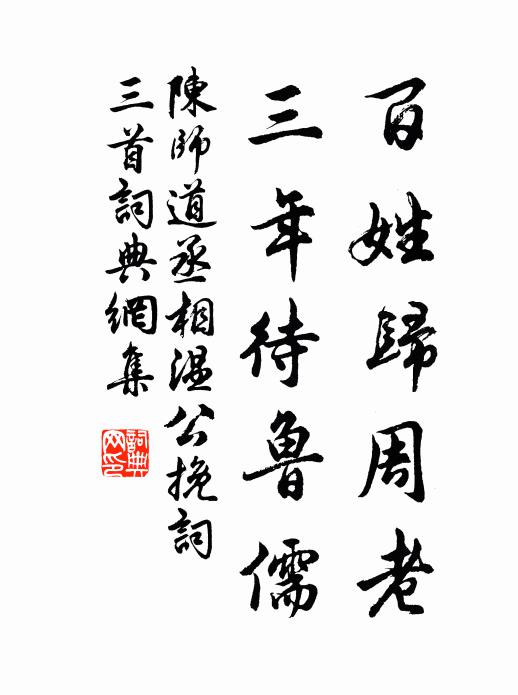 百姓歸周老
三年待魯儒
陳師道丞相温公挽詞
三首詞典網集
詞典網印